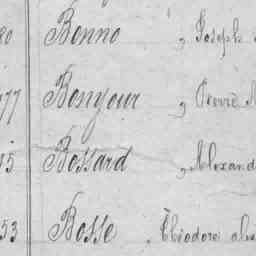 80 Benno , Joseph
77 Bonjour , Pierre
15 Bossard , Alexand
53 Bosse , Théodore